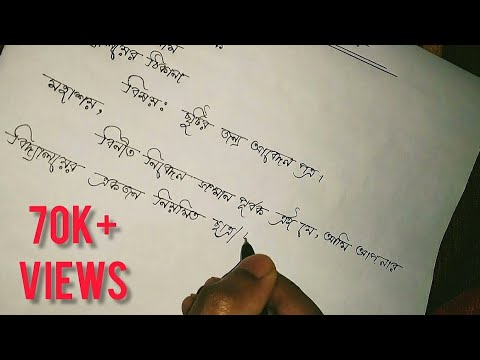 ঠিকানা
বিষয়: ছুটির জন্য আবেদন পত্র।
মহাশয়,
বিনীত নিবেদন সম্মান পূর্বক এই যে, আমি আপনার
বিদ্যালয়ের একজন নিয়মিত ছাত্র।
70K+
VIEWS